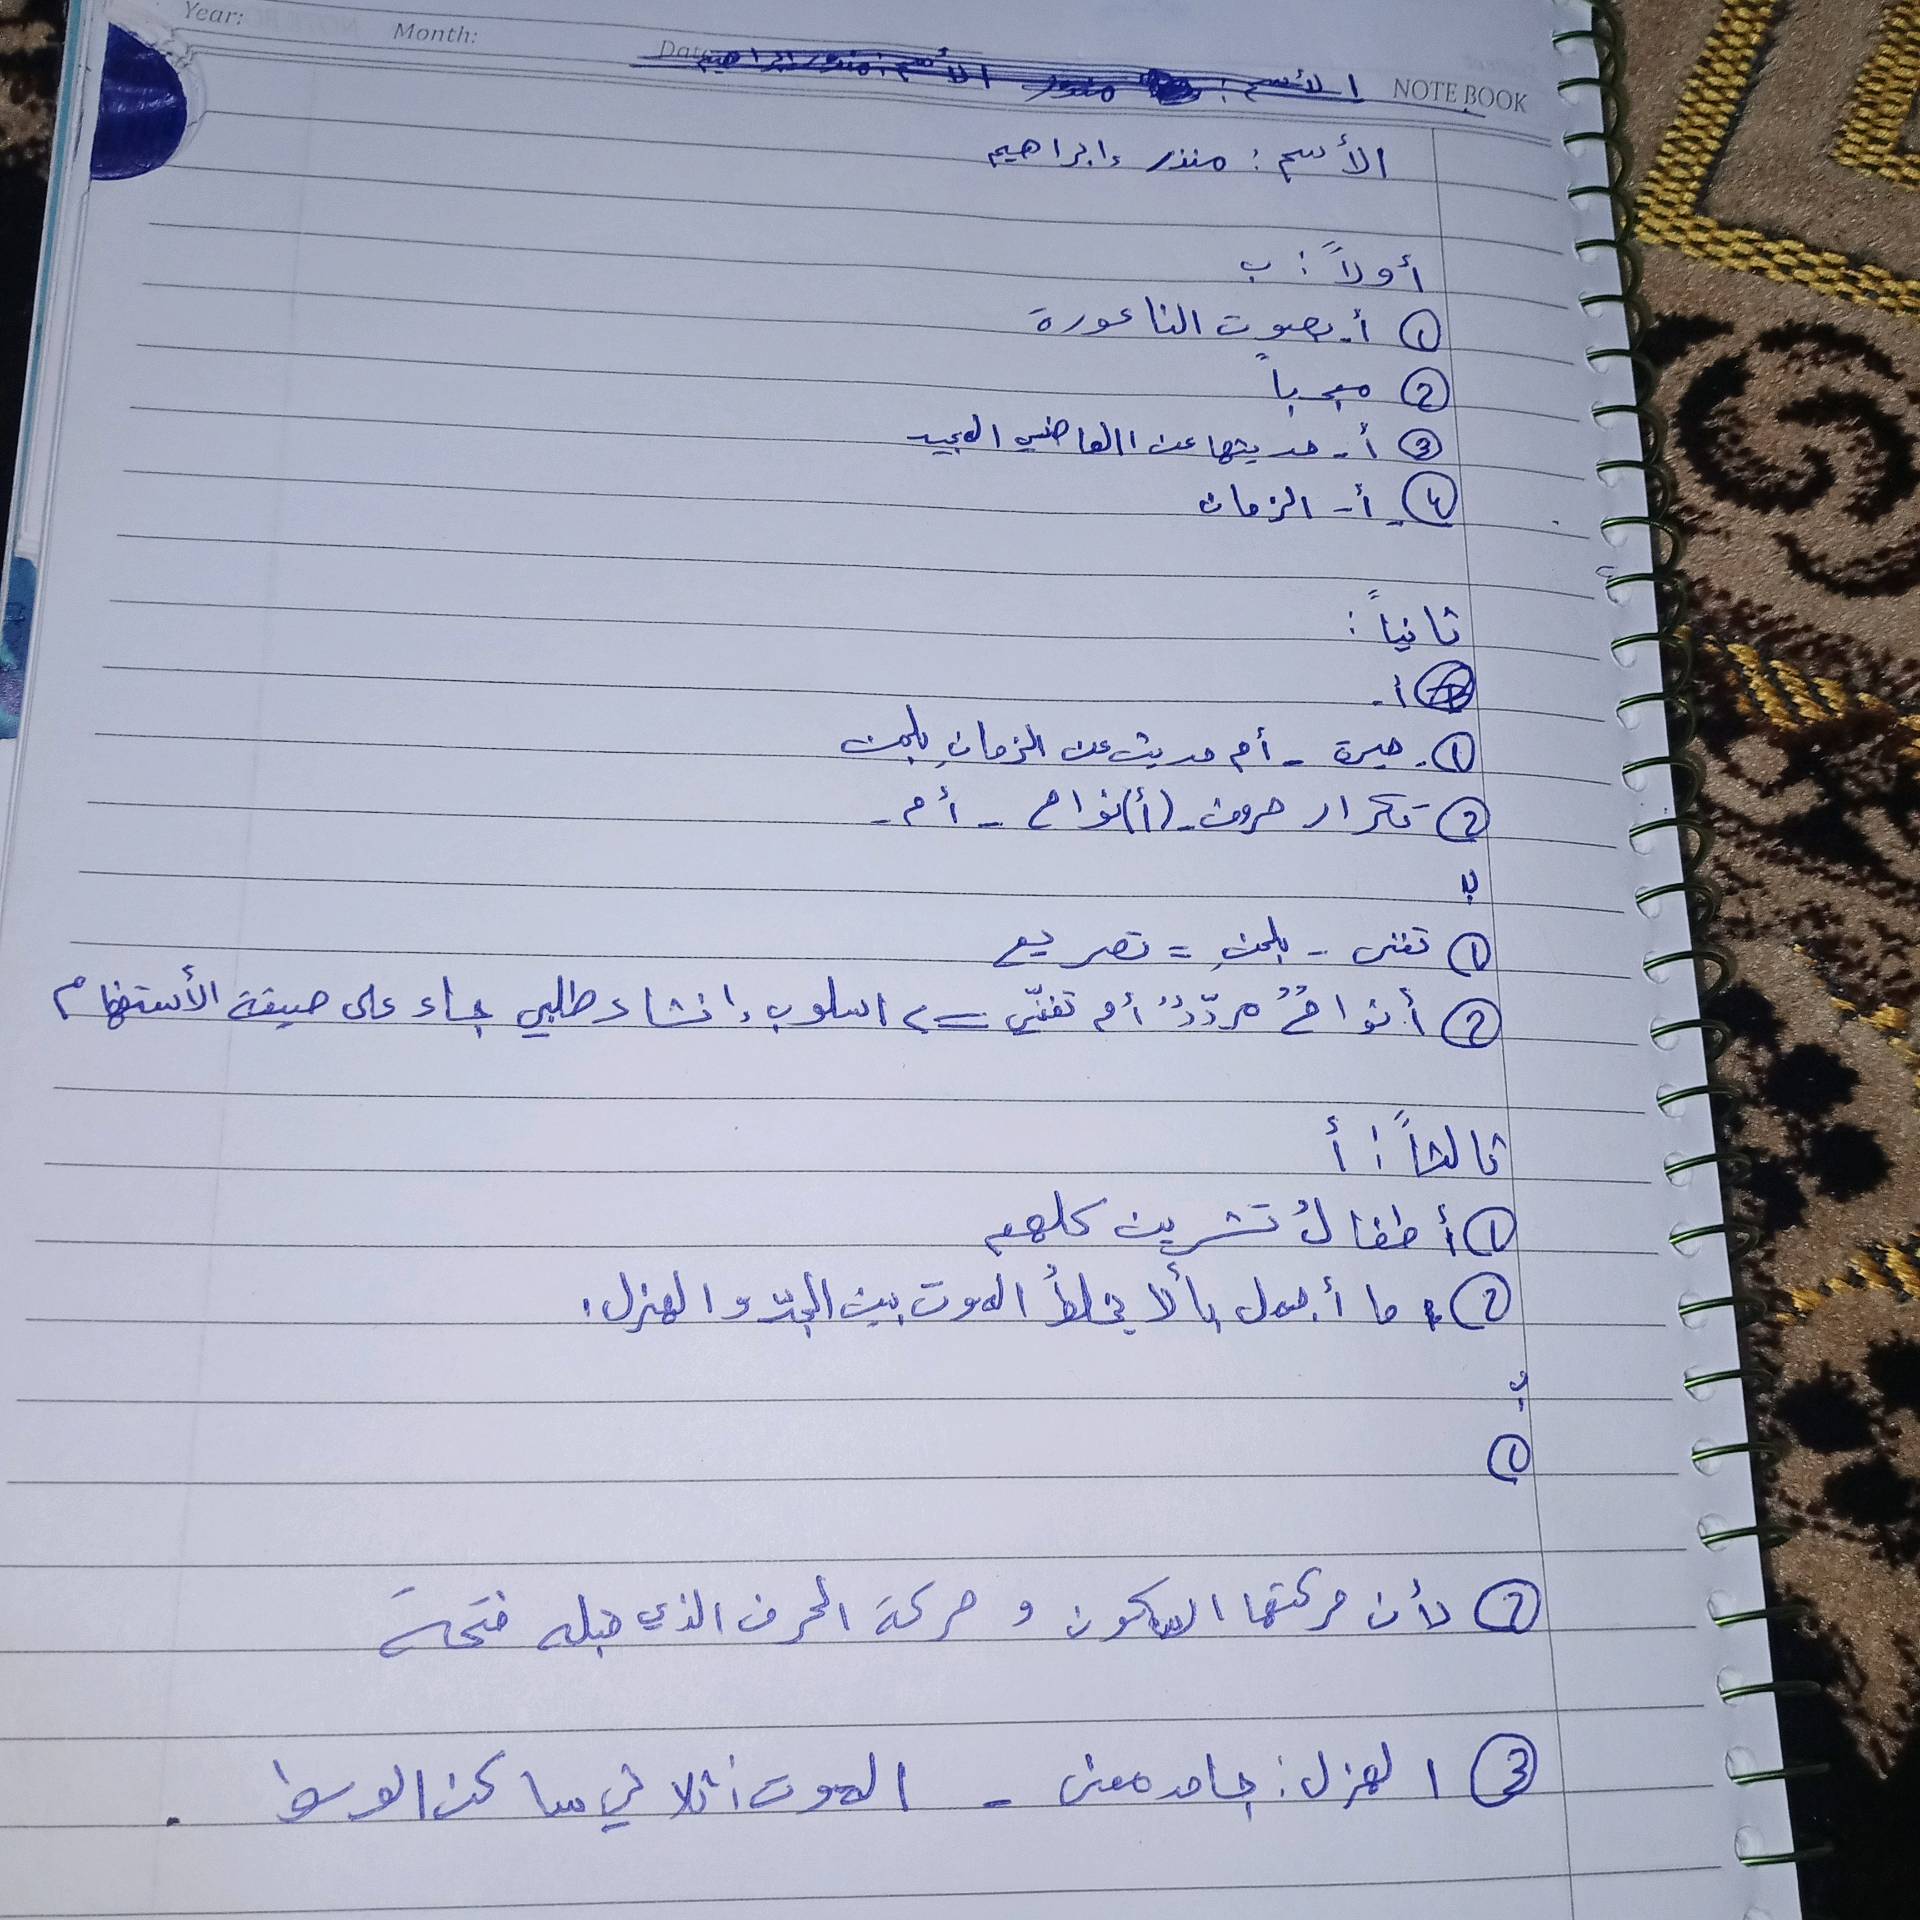 Year:
Month:
Date:
NOTE BOOK
الأسم : منذر الأسم: منذر إبراهيم
الأسم : منذر إبراهيم
أولاً : ب
① أ- بصوت الناعورة
②
③ أ- حديثها عن الماضي البعيد
④- أ- الزمان
ثانياً :
أ-
①- حيرة - أم حديث عن الزمانِ بلحن
② تكرار حروف- (أ)نواح - أم -
ب
① تغني - بلحنِ = تصريع
② أنواحٌ مردّدٌ أم تغنّي => اسلوب إنشاء طلبي جاء على صيغة الأستفهام
ثالثاً : أ
① أطفالُ تشرين كلهم
② ما أجمل بألا يخلطُ الموت بين الجدّ و الهزل.
ب
①
② لأن حركتها السكون و حركة الحرف الذي قبله فتحة
③ الهزل : جامد معنى - الموت : ثلاثي ساكن الوسط .